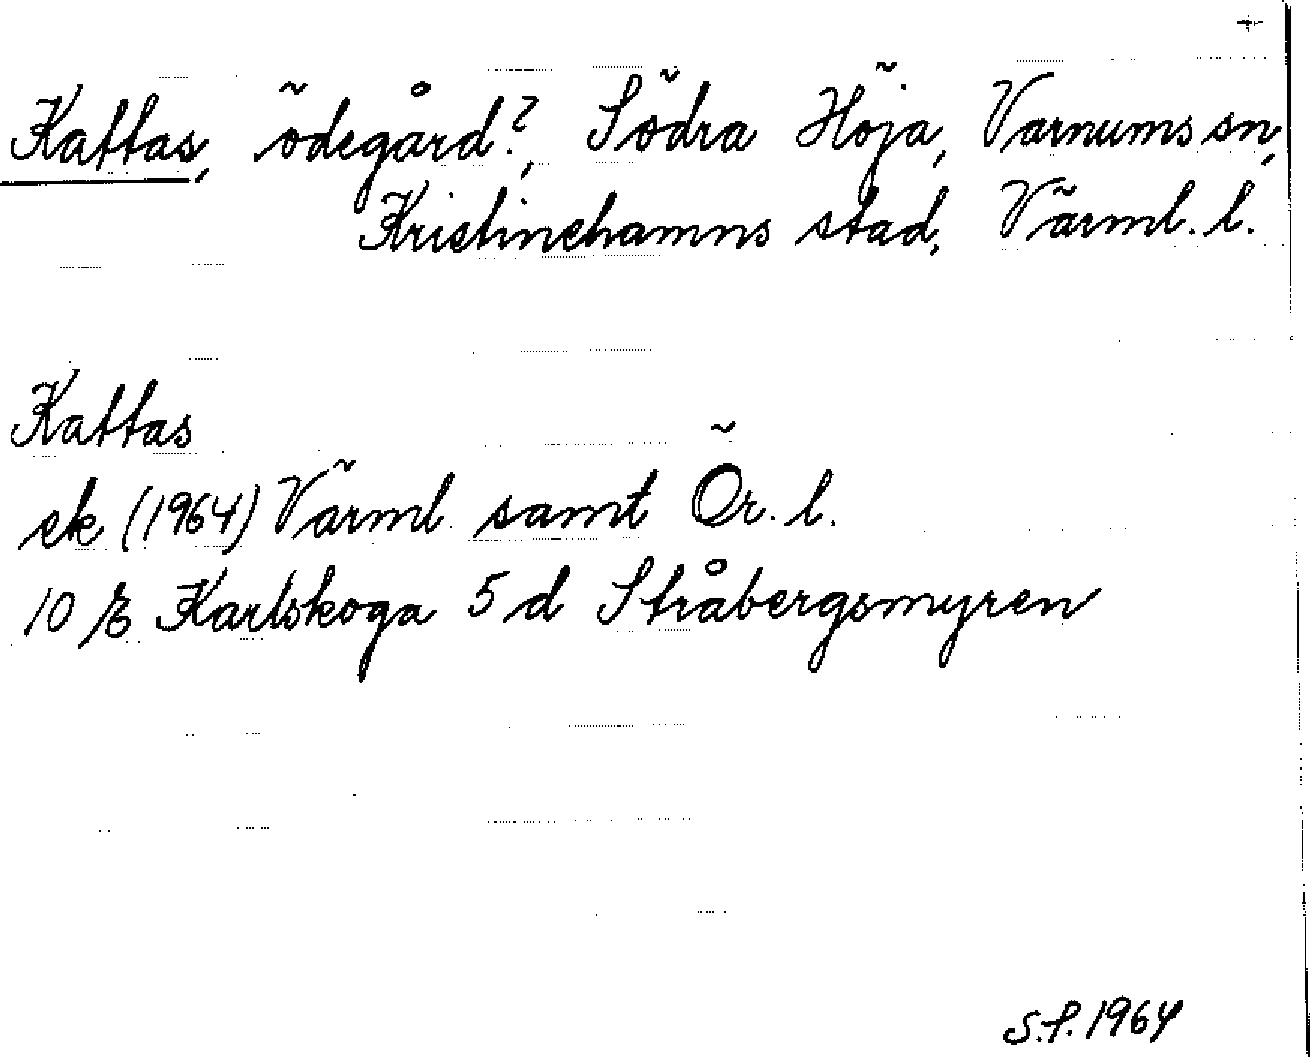 +
Kattas, ödegård?, Södra Höja, Varnums sn,
Kristinehamns stad, Värml. l.
Kattas
ek (1964) Värml. samt Ör. l.
10 E Karlskoga 5 d Stråbergsmyren
S.f. 1964